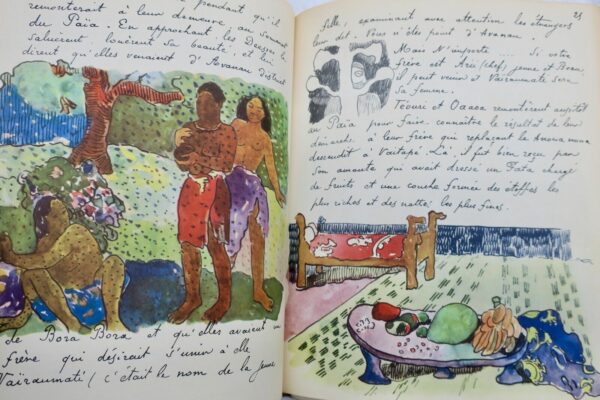 remonterait à leur demeure, au sommet
du Païa. En approchant, les Déesses la
saluèrent, louèrent sa beauté, et lui
dirent qu'elles venaient d'Avanau district
de Bora Bora et qu'elles avaient un
frère qui désirait s'unir à elle
Vaïraumati (c'était le nom de la jeune
25
fille, examinant avec attention les étrangers
leur dit. Vous n'êtes point d'Avanau.
Mais N'importe. Si votre
frère est Arii (chef) jeune et Beau,
il peut venir et Vaïraumati sera
sa femme.
Téouri et Oaaoa remontèrent aussitôt
au Païa pour faire connaître le résultat de leur
démarche à leur frère qui replaçant le
descendit à Vaïtapé. Là, il fut bien reçu par
son amante qui avait dressé un Fata chargé
de fruits et une couche formée des étoffes les
plus riches et des nattes les plus fines.